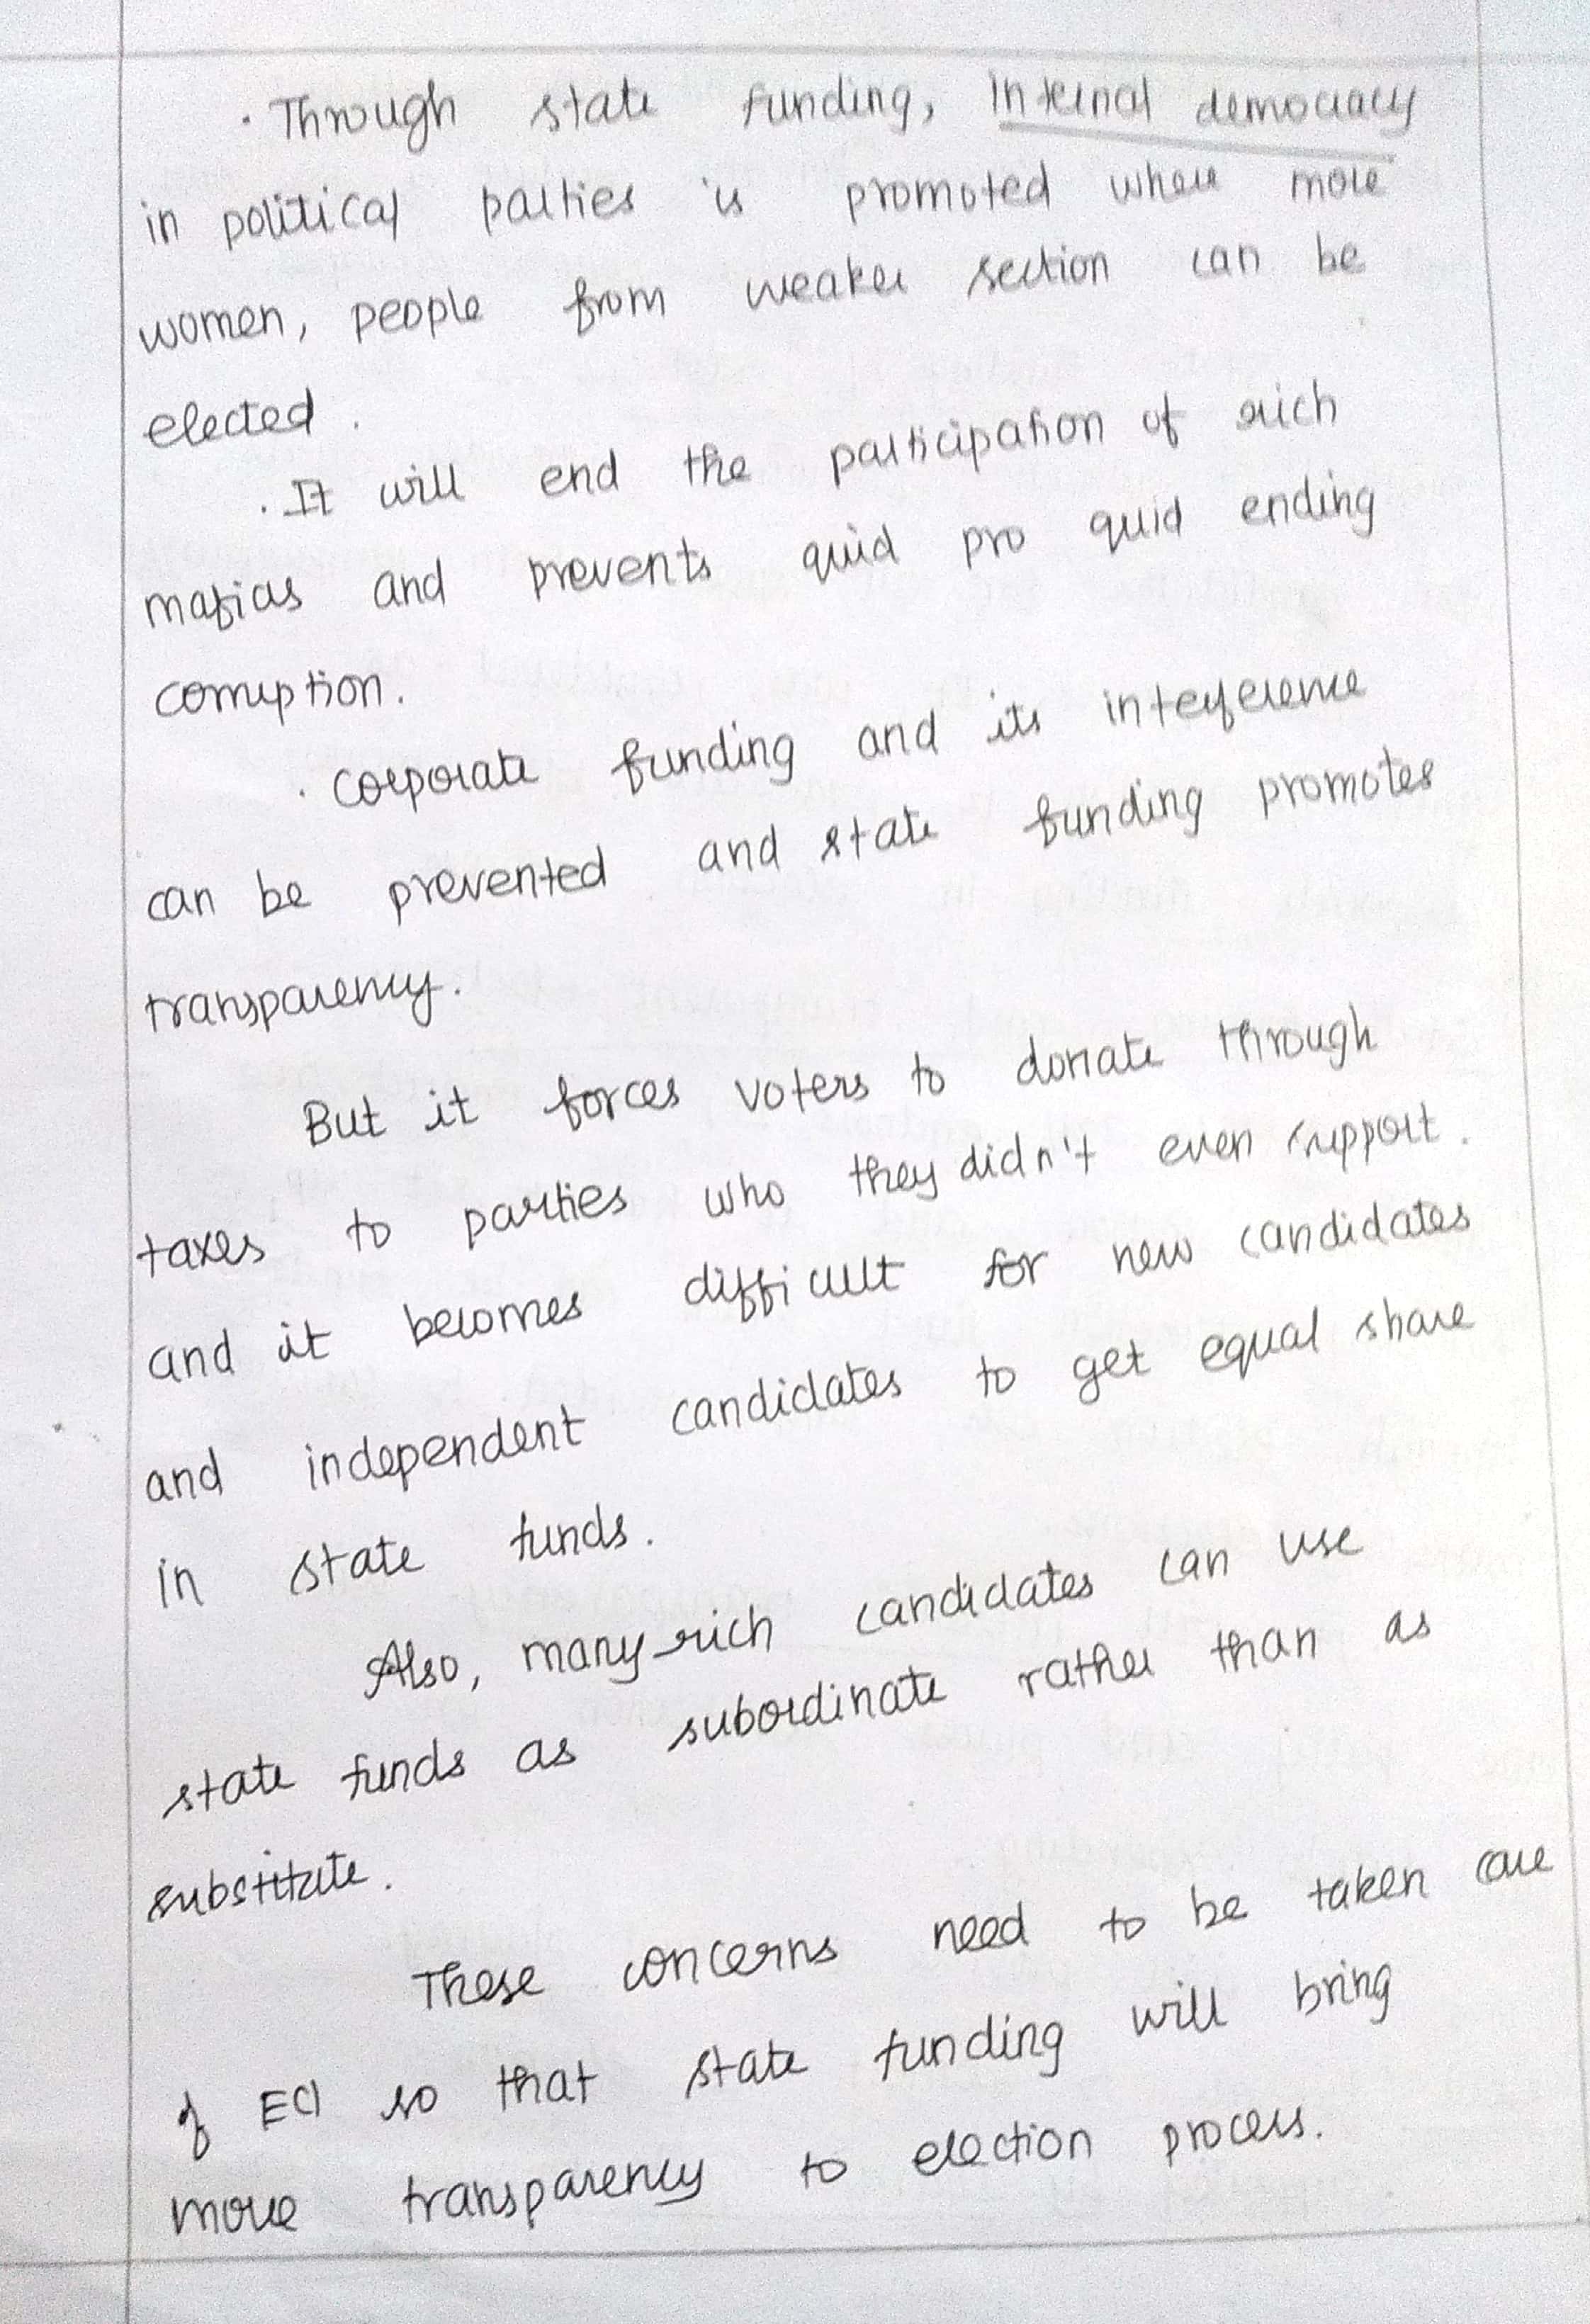 · Through state funding, Internal democracy
in political parties is promoted where more
women, people from weaker section can be
elected.
· It will end the participation of rich
mafias and prevents quid pro quid ending
corruption.
· corporate funding and its interference
can be prevented and state funding promotes
transparency.
But it forces voters to donate through
taxes to parties who they didn't even support.
and it becomes difficult for new candidates
and independent candidates to get equal share
in state funds.
Also, many rich candidates can use
state funds as subordinate rather than as
substitute.
These concerns need to be taken care
of ECI so that state funding will bring
more transparency to election process.